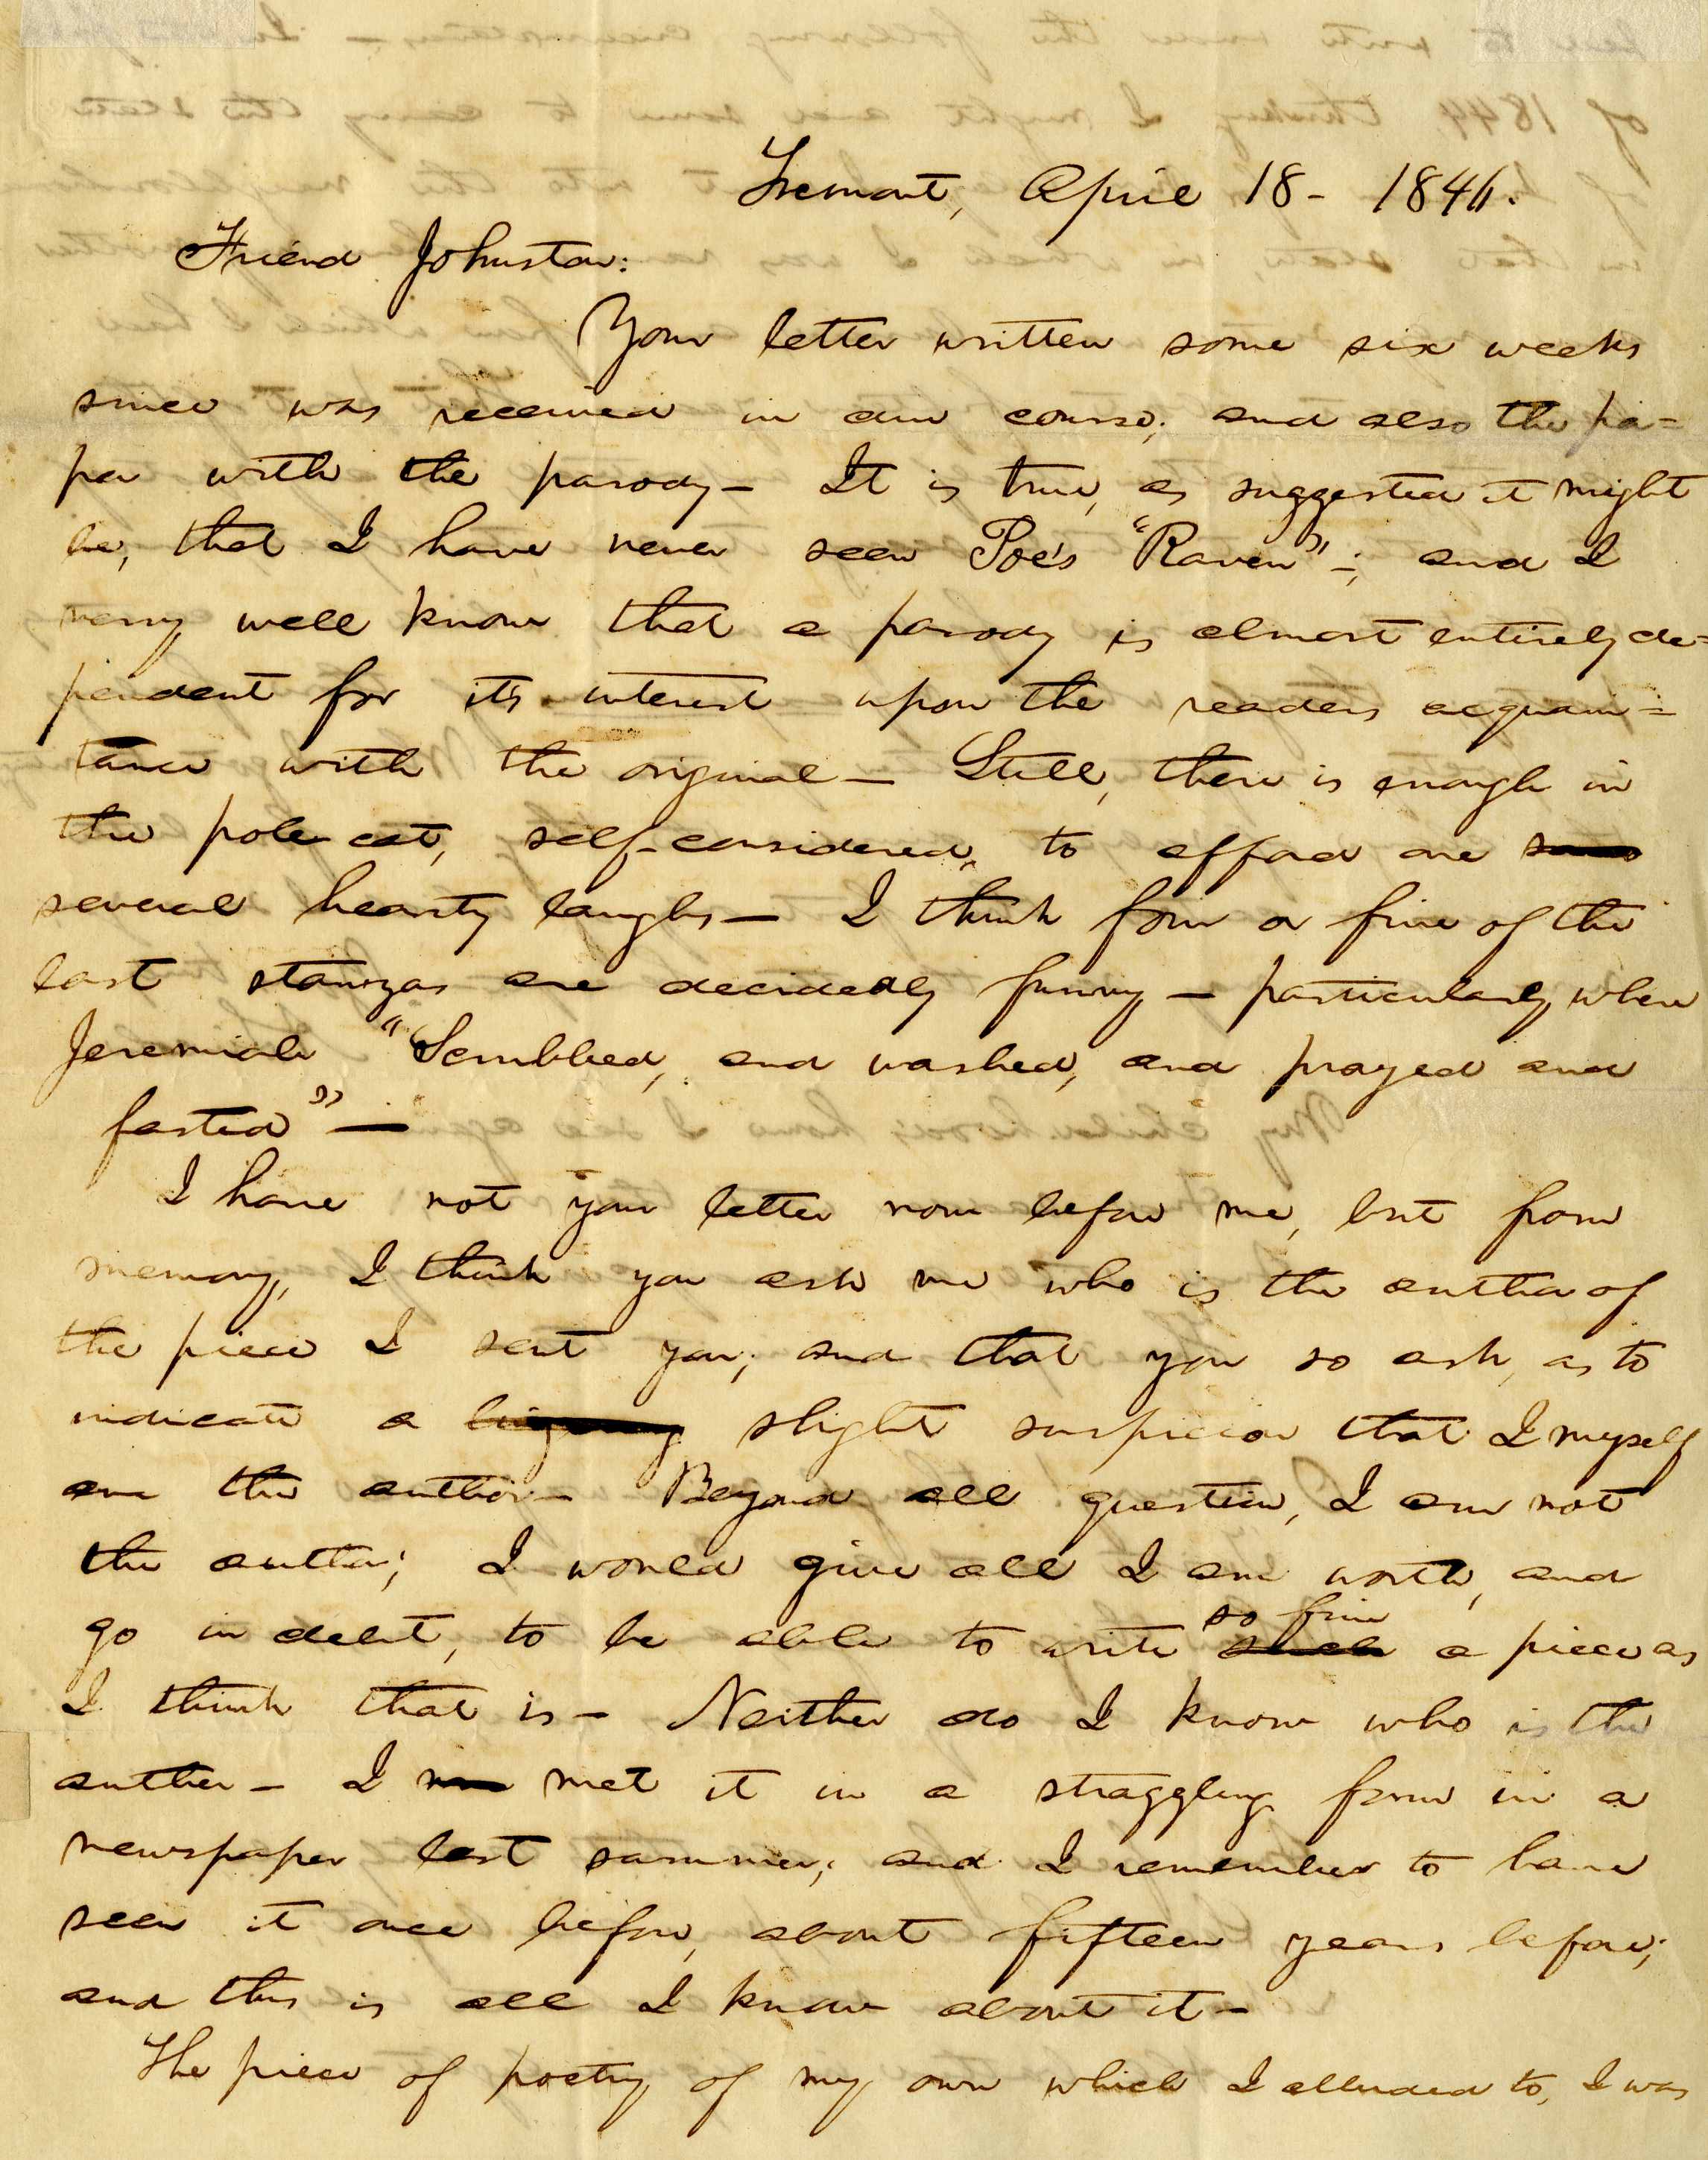 Tremont, April 18- 1846.
Friend Johnston:
Your letter written some six weeks
since was received in due course, and also the pa=
per with the parody— It is true, as suggested it might
be, that I have never seen Poe's "Raven"—; and I
very well know that a parody is almost entirely de=
pendent for its interest upon the reader's acquain=
tance with the original— Still, there is enough in
the polecat, self-considered, to afford one
several hearty laughs— I think four or five of the
last stanzas are decidedly funny— particularly where
Jeremiah "Scrubbed, and washed, and prayed and
fasted"—
I have not your letter now before me, but from
memory, I think you ask me who is the author of
the piece I sent you; and that you so ask, as to
indicate a slight suspicion that I myself
am the author— Beyond all question, I am not
the author; I would give all I am worth, and
go in debt, to be able to write so fine a piece as
I think that is— Neither do I know who is the
author— I met it in a straggling form in a
newspaper last summer; and I remember to have
seen it once before, about fifteen years before;
and this is all I know about it—
The piece of poetry of my own which I alluded to, I was